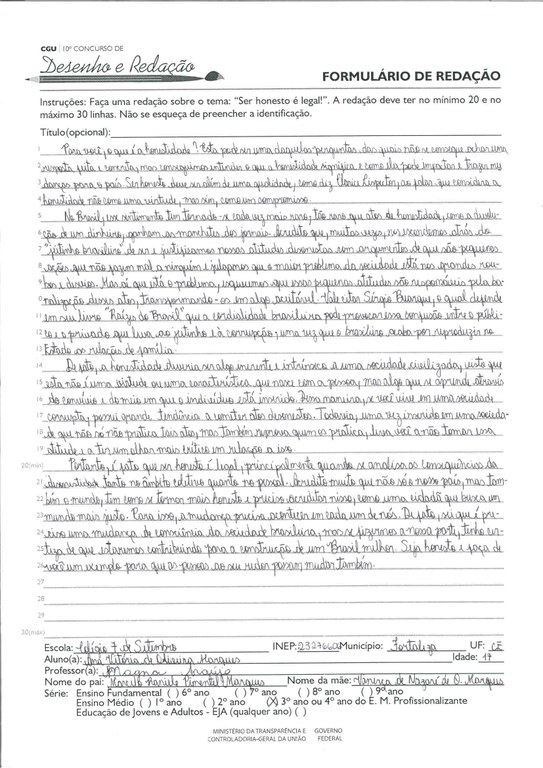 CGU | 10º CONCURSO DE
Desenho e Redação
FORMULÁRIO DE REDAÇÃO
Instruções: Faça uma redação sobre o tema: "Ser honesto é legal!". A redação deve ter no mínimo 20 e no
máximo 30 linhas. Não se esqueça de preencher a identificação.
Título(opcional):
1 Para você, o que é a honestidade? Esta pode ser uma daquelas perguntas das quais não se consegue achar uma
2 resposta feita e concreta, mas conseguimos entender o que a honestidade significa e como ela pode impactar e trazer mu
3 danças para o país. Ser honesto deve ser além de uma qualidade, como dez Clarice Lispector, ao falar que considera a
4 honestidade não como uma virtude, mas sim, como um compromisso.
5 No Brasil, esse sentimento tem tornado-se cada vez mais raro, tão raro que atos de honestidade, como a devolu-
6 ção de um dinheiro, ganham as manchetes dos jornais. Acredito que, muitas vezes, nos escondemos atrás do
7 "jeitinho brasileiro" de ser e justificamos nossas atitudes desonestas com argumentos de que são pequenas
8 ações que não fazem mal a ninguém e julgamos que o maior problema da sociedade está nos grandes rou-
9 bos e desvios. Mas aí que está o problema, esquecemos que essas pequenas atitudes são responsáveis pela ba-
10 nalização desses atos, transformando-os em algo aceitável. Vale citar Sérgio Buarque, o qual defende
11 em seu livro "Raízes do Brasil" que a cordialidade brasileira pode provocar essa confusão entre o públi-
12 co e o privado que leva ao jeitinho e à corrupção, uma vez que o brasileiro acaba por reproduzir no
13 Estado as relações de família.
14 De fato, a honestidade deveria ser algo inerente e intrínseco a uma sociedade civilizada, visto que
15 esta não é uma virtude ou uma característica que nasce com a pessoa, mas algo que se aprende através
16 do convívio e do meio em que o indivíduo está inserido. Dessa maneira, se você vive em uma sociedade
17 corrupta, possui grande tendência a cometer atos desonestos. Todavia, uma vez inserido em uma socieda-
18 de que não só não pratica tais atos, mas também reprova quem os pratica, leva você a não tomar essa
19 atitude e a ter um olhar mais crítico em relação a isso.
20(min) Portanto, é fato que ser honesto é legal, principalmente quando se analisa as consequências da
21 desonestidade tanto no âmbito coletivo quanto no pessoal. Acredito muito que não só o nosso país, mas tam-
22 bém o mundo, tem como se tornar mais honesto e preciso acreditar nisso, como uma cidadã que busca um
23 mundo mais justo. Para isso, a mudança precisa acontecer em cada um de nós. De fato, sei que é pre-
24 ciso uma mudança de consciência da sociedade brasileira, mas se fizermos a nossa parte, tenho cer-
25 teza de que estaremos contribuindo para a construção de um Brasil melhor. Seja honesto e faça de
26 você um exemplo para que as pessoas ao seu redor possam mudar também.
27
28
29
30(máx)
Escola: Colégio 7 de Setembro INEP: 23276602 Município: Fortaleza UF: CE
Aluno(a): Ana Vitória de Oliveira Marques Idade: 17
Professor(a): Magna Araújo
Nome do pai: Marcelo Daniele Pimentel Marques Nome da mãe: Vanessa de Nazaré de O. Marques
Série: Ensino Fundamental ( ) 6º ano ( ) 7º ano ( ) 8º ano ( ) 9º ano
Ensino Médio ( ) 1º ano ( ) 2º ano (X) 3º ano ou 4º ano do E. M. Profissionalizante
Educação de Jovens e Adultos - EJA (qualquer ano) ( )
MINISTÉRIO DA TRANSPARÊNCIA E GOVERNO
CONTROLADORIA-GERAL DA UNIÃO FEDERAL